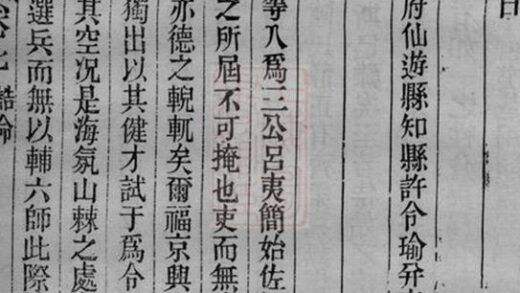 府仙遊縣知縣許令瑜幷
等入爲三公呂夷簡始佐
之所屆不可掩也吏而無
亦德之輗軏矣爾福京興
獨出以其健才試于爲令
其空况是海氛山棘之處
選兵而無以輔六師此際
誥命